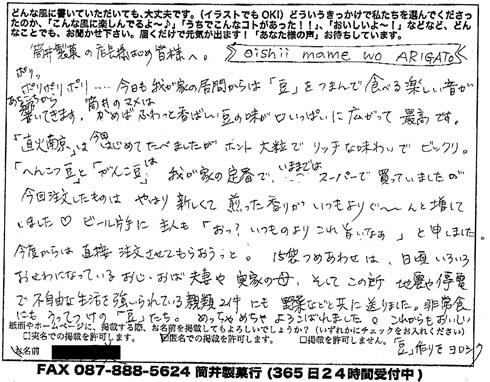 どんな風に書いていただいても、大丈夫です。(イラストでもOK!) どういうきっかけで私たちを選んでくださったのか、「こんな風に楽しんでるよ〜♪」「うちでこんなコトがあった!!」、「おいしいよ〜!」などなど、どんなことでも、お聞かせ下さい。届くだけで元気が出ます!「あなたの声」お待ちしています。
筒井製菓の店長様はじめ皆様へ。
Oishii mame wo ARIGATO
ポリッ
ポリポリポリ・・・・今日も我が家の居間からは「豆」をつまんで食べる楽しい音が
あちらこちらから
響いてきます。筒井のマメは かめばふわっと香ばしい豆の味が口いっぱいに広がって最高です。
「直火南京」は今回はじめてたべましたがホント大粒でリッチな味わいでビックリ。
「へんこつ豆」と「がんこ豆」は我が家の定番で、いままではスーパーで買っていましたので
今回注文したものは やはり新しくて煎った香りがいつもよりぐ〜〜んと増して
いました♡ ビール片手に主人も「おっ?いつものよりこれ旨いなぁ」と申しました。
今度からは直接注文させてもらおうっと。15袋つめあわせは、日頃いろいろ
おせわになっているおじ・おば夫妻や実家の母、そしてこの所 地震や停電
で不自由な生活を強いられている親類2件にも野菜などと共に送りました。非常食
にもうってつけの「豆」たち。めっちゃめちゃよろこばれました。これからもおいしい
「豆」作りをヨロシク
紙面やホームページに、掲載する際、お名前を掲載してもよろしいでしょうか?(いずれかにチェックをお入れください)
□実名での掲載を許可します。 □匿名での掲載を許可します。 □掲載を許可しません。
お名前
FAX 087-888-5624 筒井製菓行 (365日24時間受付中)